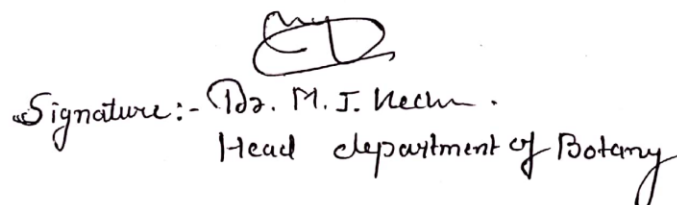 Signature:- Dr. M. J.
Head department of Botany